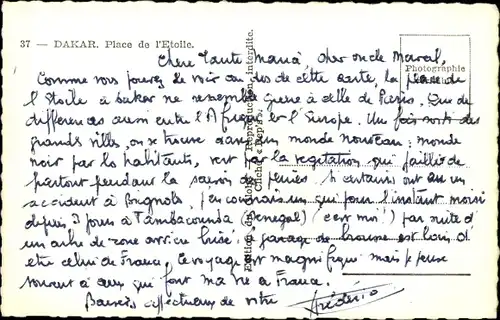 37 — DAKAR. Place de l'Etoile.
Chère Tante Maria, cher oncle Marcel,
Comme vous pouvez le voir au dos de cette carte, la place de
l'Etoile à Dakar ne ressemble guère à celle de Paris. Que de
différences aussi entre l'Afrique et l'Europe. Un fois sorti des
grands villes, on se trouve dans un monde nouveau: monde
noir par les habitants, vert par la végétation qui jaillit de
partout pendant la saison des pluies. Si certains ont eu un
accident à Brignols, j'en connais un qui pour l'instant moisi
depuis 3 jours à Tambacounda (Sénégal) (c'est moi!) par suite d'
un arbre de roue arrière brisé. Le garage de brousse est loin d'
être celui de France. Le voyage est magnifique mais je pense
souvent à ceux qui font ma vie à France.
Baisers affectueux de votre Frédéric
Photographie
Edition du Globe - Reproduction interdite.
Cliché « Rep's »